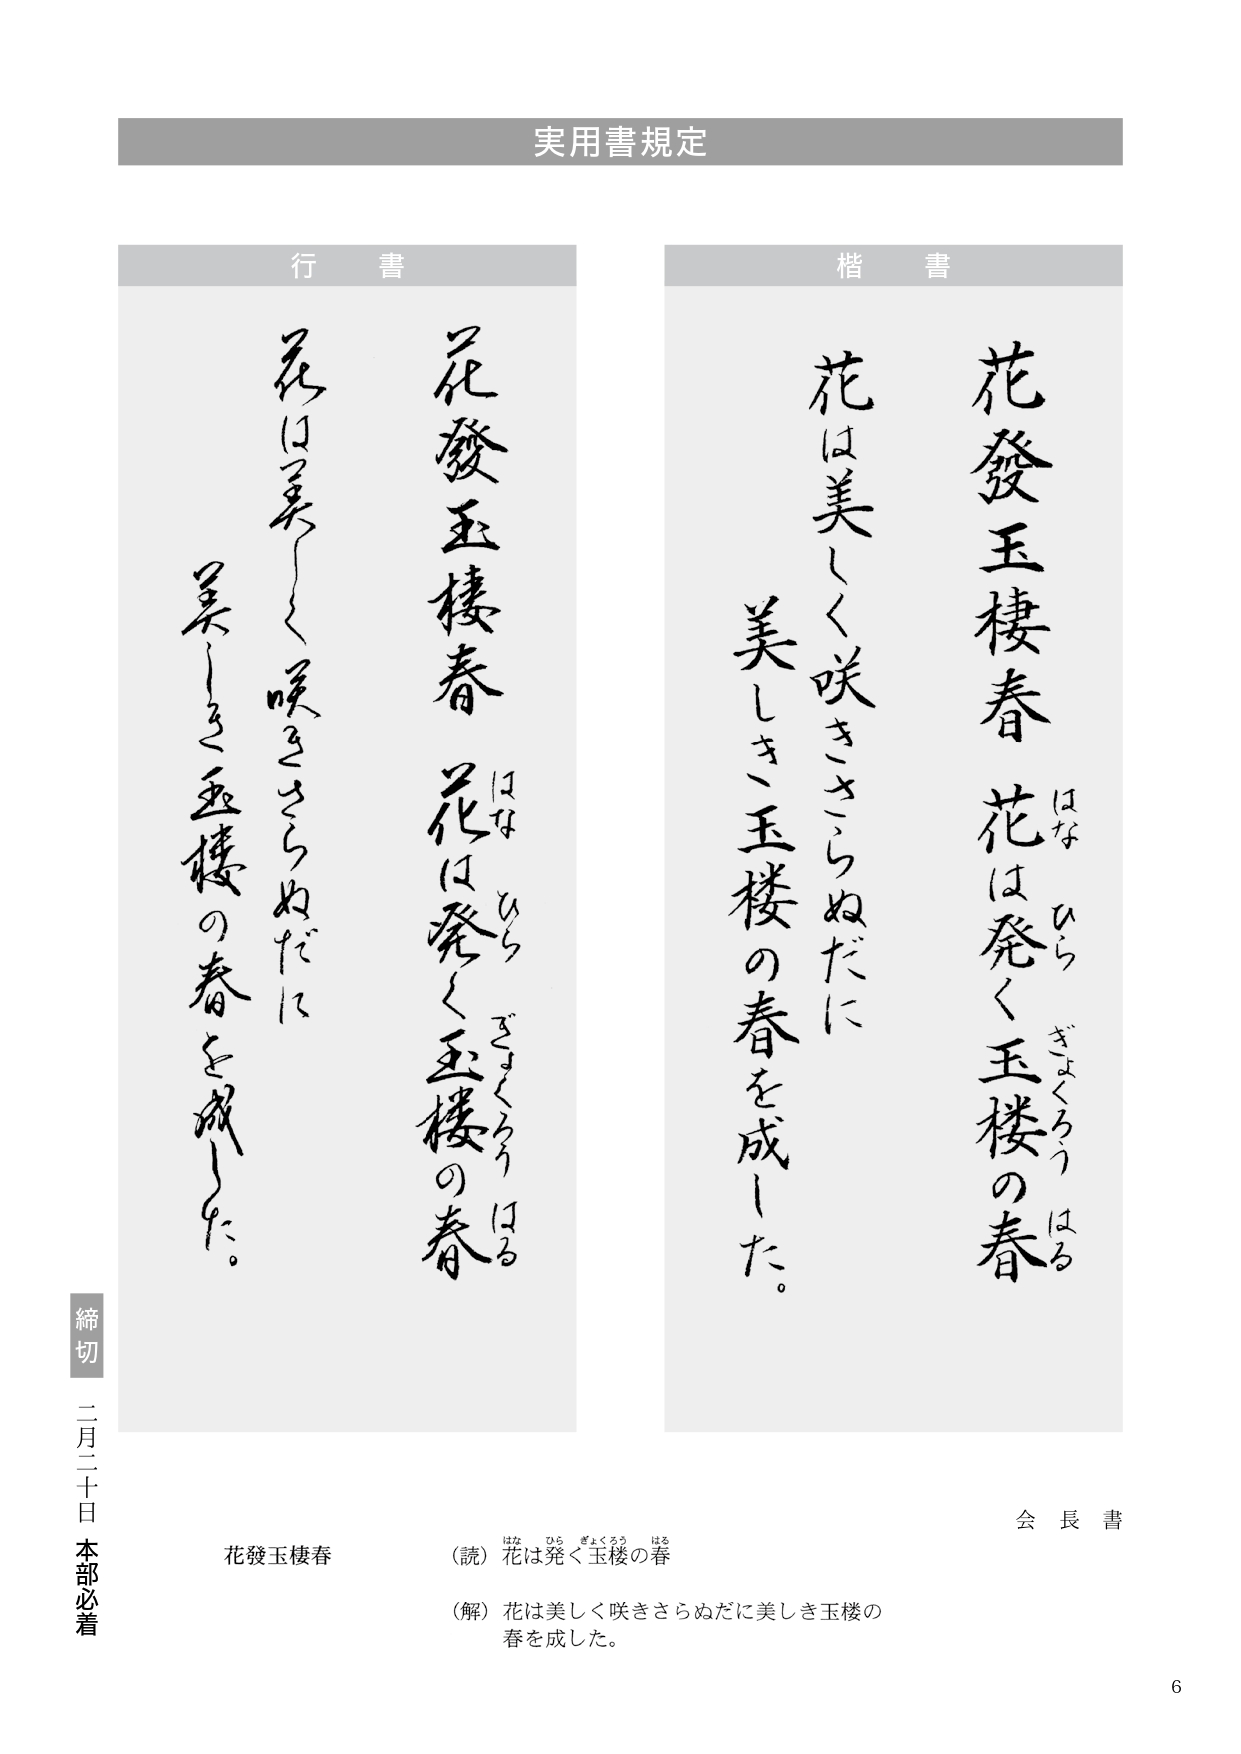 実用書規定
楷書
花發玉棲春 花は発く玉楼の春
はな ひら ぎょくろう はる
花は美しく咲きさらぬだに
美しき玉楼の春を成した。
行書
花發玉楼春 花は発く玉楼の春
はな ひら ぎょくろう はる
花は美しく咲きさらぬだに
美しき玉楼の春を成した。
会長書
花發玉棲春
（読）花は発く玉楼の春
はな ひら ぎょくろう はる
（解）花は美しく咲きさらぬだに美しき玉楼の
春を成した。
締切 二月二十日 本部必着
6